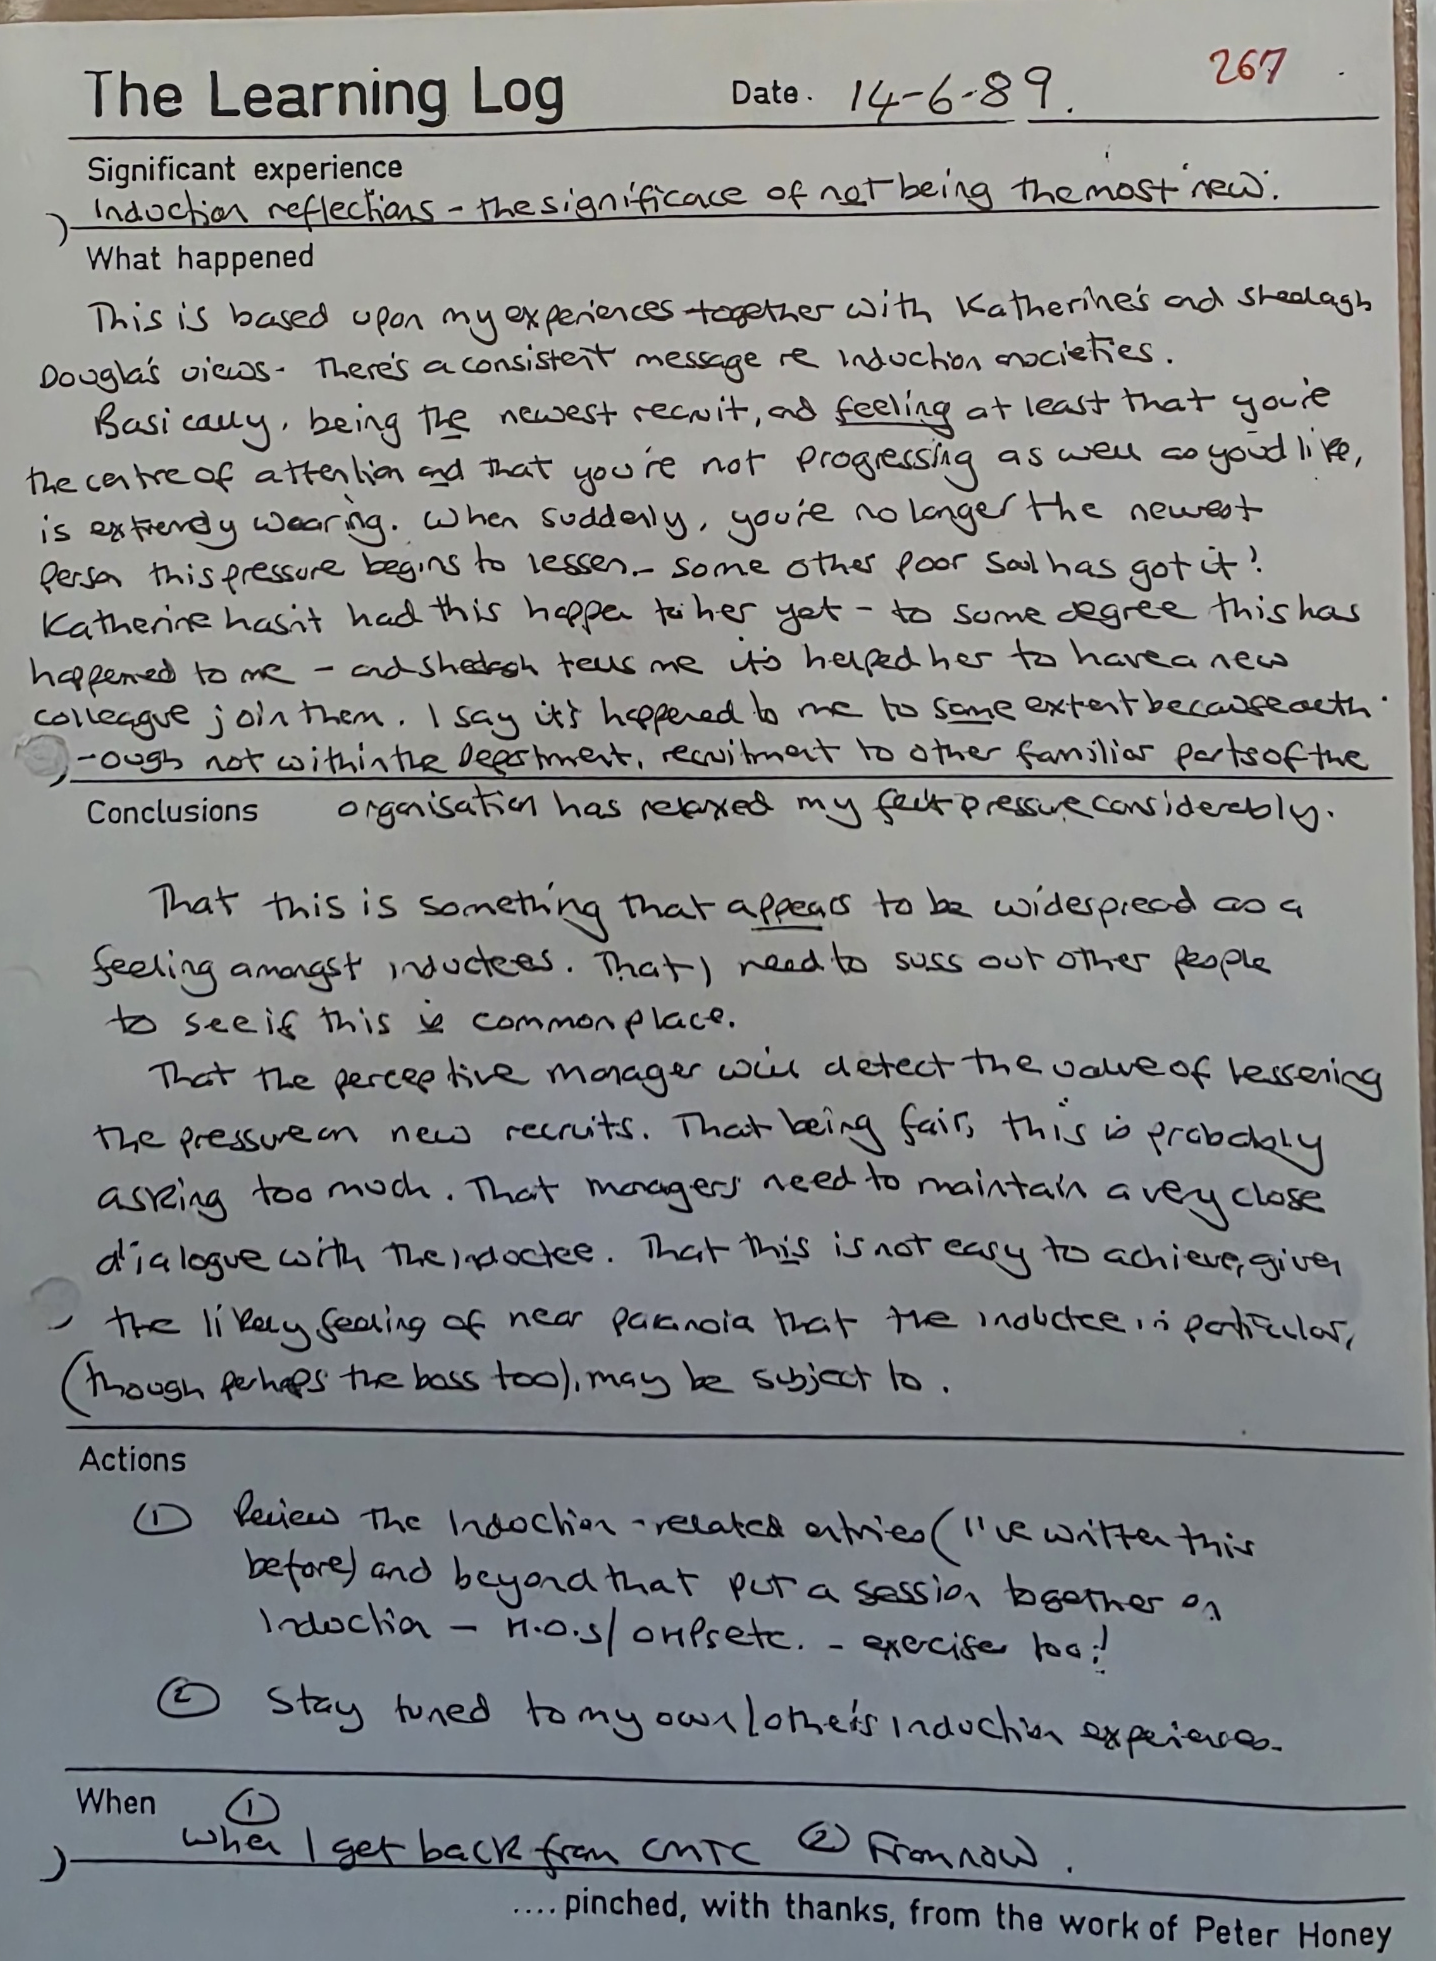 267
The Learning Log Date. 14-6-89.
Significant experience
Induction reflections - the significace of not being the most 'new'.
What happened
This is based upon my experiences together with Katherine's and Shealagh
Douglas's views - there's a consistent message re induction anxieties.
Basically, being the newest recruit, and feeling at least that you're
the centre of attention and that you're not progressing as well as you'd like,
is extremely wearing. When suddenly, you're no longer the newest
person this pressure begins to lessen - some other poor soul has got it!
Katherine hasn't had this happen to her yet - to some degree this has
happened to me - and Shealagh tells me it's helped her to have a new
colleague join them. I say it's happened to me to some extent because alth
-ough not within the Department, recruitment to other familiar parts of the
Conclusions organisation has relaxed my felt pressure considerably.
That this is something that appears to be widespread as a
feeling amongst inductees. That I need to suss out other people
to see if this is commonplace.
That the perceptive manager will detect the value of lessening
the pressure on new recruits. That being fair, this is probably
asking too much. That managers need to maintain a very close
dialogue with the inductee. That this is not easy to achieve, given
the likely feeling of near paranoia that the inductee in particular,
(though perhaps the boss too), may be subject to.
Actions
① Review the Induction-related entries (I've written this
before) and beyond that put a session together on
Induction - H.O.s/OHPs etc. - exercise too!
② Stay tuned to my own/other's induction experiences.
When ①
When I get back from CMTC ② From now.
....pinched, with thanks, from the work of Peter Honey